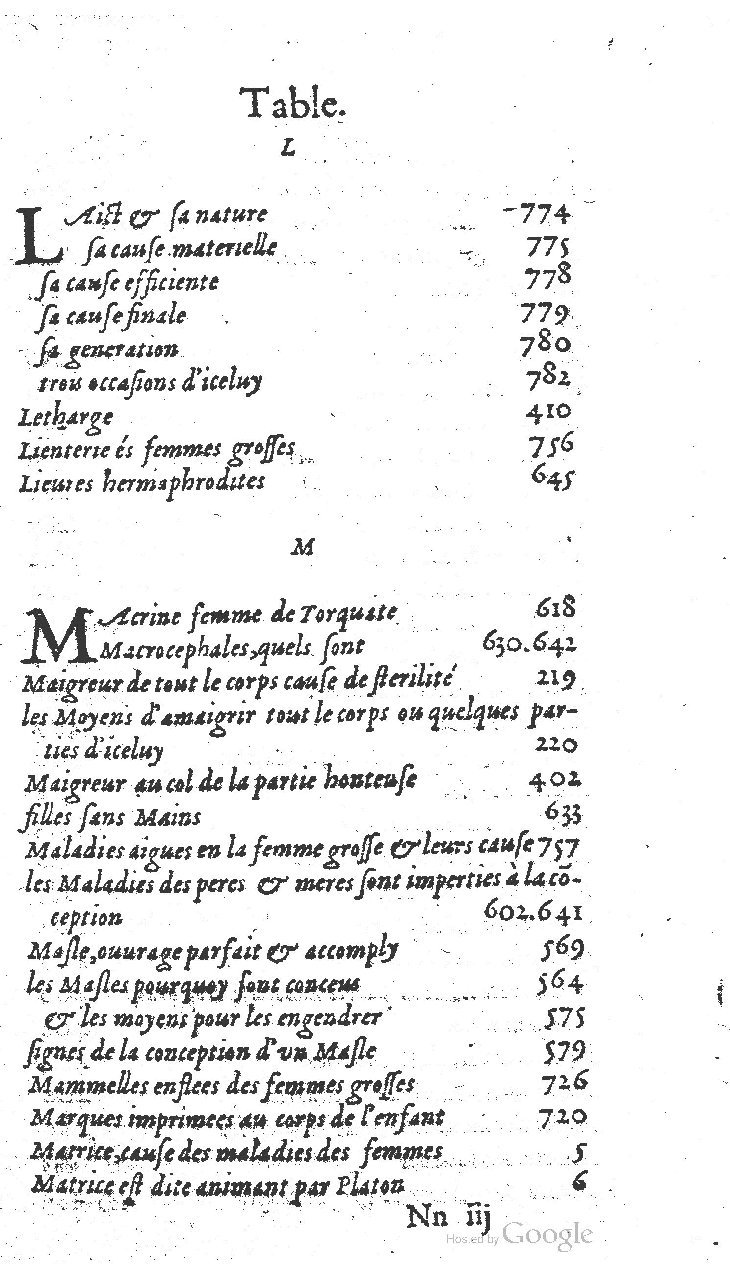 Table.
L
LAict & sa nature 774
sa cause materielle 775
sa cause efficiente 778
sa cause finale 779
sa generation 780
trois occasions d'iceluy 782
Letharge 410
Lienterie és femmes grosses 756
Lieures hermaphrodites 645
M
MAcrine femme de Torquate 618
Macrocephales, quels sont 630.642
Maigreur de tout le corps cause de sterilité 219
les Moyens d'amaigrir tout le corps ou quelques par-
ties d'iceluy 220
Maigreur au col de la partie honteuse 402
filles sans Mains 633
Maladies aigues en la femme grosse & leurs cause 757
les Maladies des peres & meres sont imperties à la cō-
ception 602.641
Masle, ouurage parfait & accomply 569
les Masles pourquoy sont conceus 564
& les moyens pour les engendrer 575
signes de la conception d'un Masle 579
Mammelles enflees des femmes grosses 726
Marques imprimees au corps de l'enfant 720
Matrice, cause des maladies des femmes 5
Matrice est dite animant par Platon 6
Nn iij
Hosted by Google